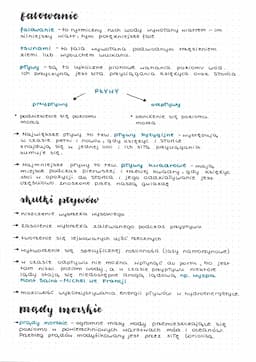 falowanie
falowanie - to rytmiczny ruch wody wywołany wiatrem - im
silniejszy wiatr, tym potężniejsze fale
tsunami - to fala wywołana podwodnym trzęsieniem
ziemi lub wybuchem wulkanu.
pływy - są to cykliczne pionowe wahania poziomu wód,
ich przyczyną jest siła przyciągania księżyca oraz słońca
PŁYWY
przypływy odpływy
• podniesienie się poziomu • obniżenie się poziomu
morza morza
→ Największe pływy to tzw. pływy syzygijne - występują
w czasie pełni i nowiu, gdy księżyc i słońce
znajdują się w jednej linii i ich siła przyciągania
sumuje się.
→ Najmniejsze pływy to tzw. pływy kwadrowe - mają
miejsce podczas pierwszej i trzeciej kwadry, gdy księżyc
jest w opozycji do słońca i jego oddziaływanie jest
częściowo znoszone przez naszą gwiazdę
skutki pływów
→ niszczenie wybrzeża wysokiego
→ zasolenie wybrzeża zalewanego podczas przypływu
→ tworzenie się lejkowatych ujść rzecznych
→ wytworzenie się specyficznej roślinności (lasy namorzynowe)
→ w czasie odpływu nie można wpłynąć do portu, bo jest
tam niski poziom wody, a w czasie przypływu niektóre
lądy stają się niedostępne drogą lądową, np. wyspa
Mont Saint-Michel we Francji
→ możliwość wykorzystywania energii pływów w hydroenergetyce
prądy morskie
→ prądy morskie - ogromne masy wody przemieszczające się
poziomo w powierzchniowych warstwach mórz i oceanów.
Przebieg prądów modyfikowany jest przez siłę Coriolisa.